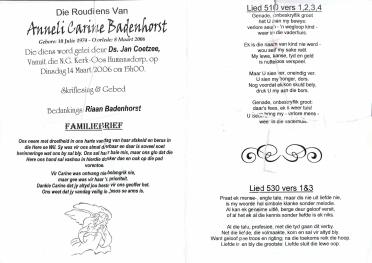 Die Roudiens Van
Anneli Carine Badenhorst
Gebore: 10 Julie 1974 - Oorlede: 8 Maart 2006
Die diens word gelei deur Ds. Jan Coetzee,
Vanuit die N.G. Kerk-Oos Humansdorp, op
Dinsdag 14 Maart 2006 om 15h00.
Skriflesing & Gebed
Bedankings: Riaan Badenhorst
FAMILIEBRIEF
Ons wees met droefheid in ons harte vandag van haar afskeid en berus in
die Here se Wil. Sy was vir ons almal dierbaar en daar is soveel soet
herinneringe wat ons by sal bly. Ons sal haar baie mis, maar ons glo dat die
Here ons hand sal vashou in hierdie donker dae en ook op die pad
vorentoe.
Vir Carine was ontvang nie belangrik nie,
maar gee was vir haar 'n prioriteit.
Dankie Carine dat jy altyd jou beste vir ons geoffer het.
Ons weet dat jy vandag veilig is in Jesus se arms is.
Lied 510 vers 1,2,3,4
Genade, onbeskryflik groot
het U aan my bewys:
verlore seun - 'n wegloop kind -
waar in die vaderhuis.
Ek is die naam van kind nie werd -
wou self my sake reël.
My lewe, kanse, tyd en geld
is nutteloos verspeel.
Maar U sien ver, oneindig ver.
U sien my honger, dors.
Nog voordat ek kon skuld bely,
druk U my aan die bors.
Genade, onbeskryflik groot:
daar's fees, ek it weer tuis!
U bring my - verlore mens -
weer in die vaderhuis.
Lied 530 vers 1&3
Praat ek mense-, engele tale, maar die nie uit liefde nie,
is my woorde net simbale klanke sonder melodie.
Al kan ek geheime uitlê, berge deur geloof versit,
of al het ek al die kennis sonder liefde is ek niks.
Al die talu, profesieë, met die tyd gaan dit verby.
Net die liefde, die volmaakte, kom en sal vir altyd bly.
Want geloof gee troos en rigting; na die toekoms reik die hoop.
Liefde is en bly die grootste: Liefde sluit die lewe oop.